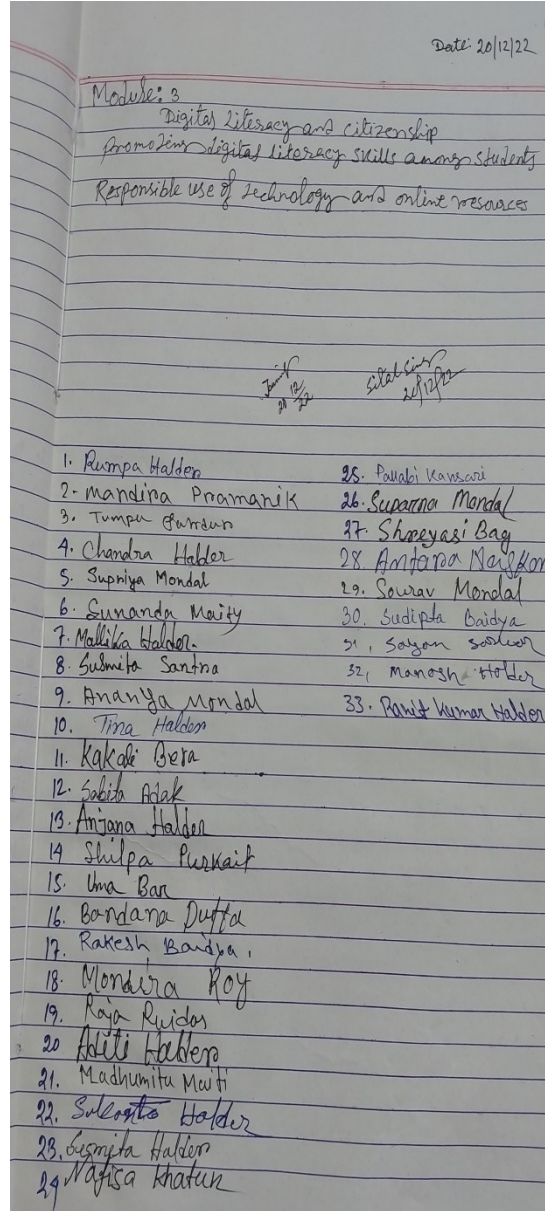 Date: 20/12/22
Module: 3
Digital Literacy and citizenship
Promoting digital literacy skills among students
Responsible use of technology and online resources
20/12/22
Sital Sing
20/12/22
1. Rumpa Halder
2. Mandira Pramanik
3. Tumpa
4. Chandra Halder
5. Supriya Mondal
6. Sunanda Maity
7. Mallika Halder.
8. Susmita Santra
9. Ananya Mondal
10. Tina Halder
11. Kakali Bera
12. Sabita Adak
13. Anjana Halder
14 Shilpa Purkait
15. Uma Bar
16. Bandana Dutta
17. Rakesh Baidya.
18. Mondira Roy
19. Raja Ruidas
20 Aditi Halder
21. Madhumita Maiti
22. Halder
23. Susmita Halder
24 Nafisa Khatun
25. Pallabi Kansari
26. Suparna Mondal
27. Shreyasi Bag
28. Antara Naskar
29. Sourav Mondal
30. Sudipta Baidya
31, Sayan Sardar
32, Manosh Holder
33. Ranit Kumar Halder